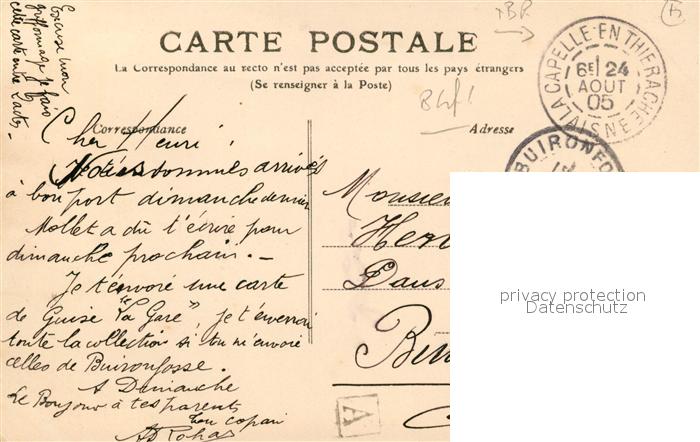 CARTE POSTALE
La Correspondance au recto n'est pas acceptée par tous les pays étrangers
(Se renseigner à la Poste)
Correspondance
Adresse
LA CAPELLE-EN-THIERACHE
6E 24
AOUT
05
AISNE
BUIRONFO
Excuse mon
griffonnage je fais
cette carte entre
Cher Henri,
Nous sommes arrivés
à bon port dimanche dernier
Mollet a dû t'écrire pour
dimanche prochain. -
Je t'envoie une carte
de Guise "La Gare", je t'enverrai
toute la collection si tu m'envoie
celles de Buironfosse.
A Dimanche
Le Bonjour à tes parents
Ton copain
Monsieu
Hen
Dans
Bui
A
privacy protection
Datenschutz